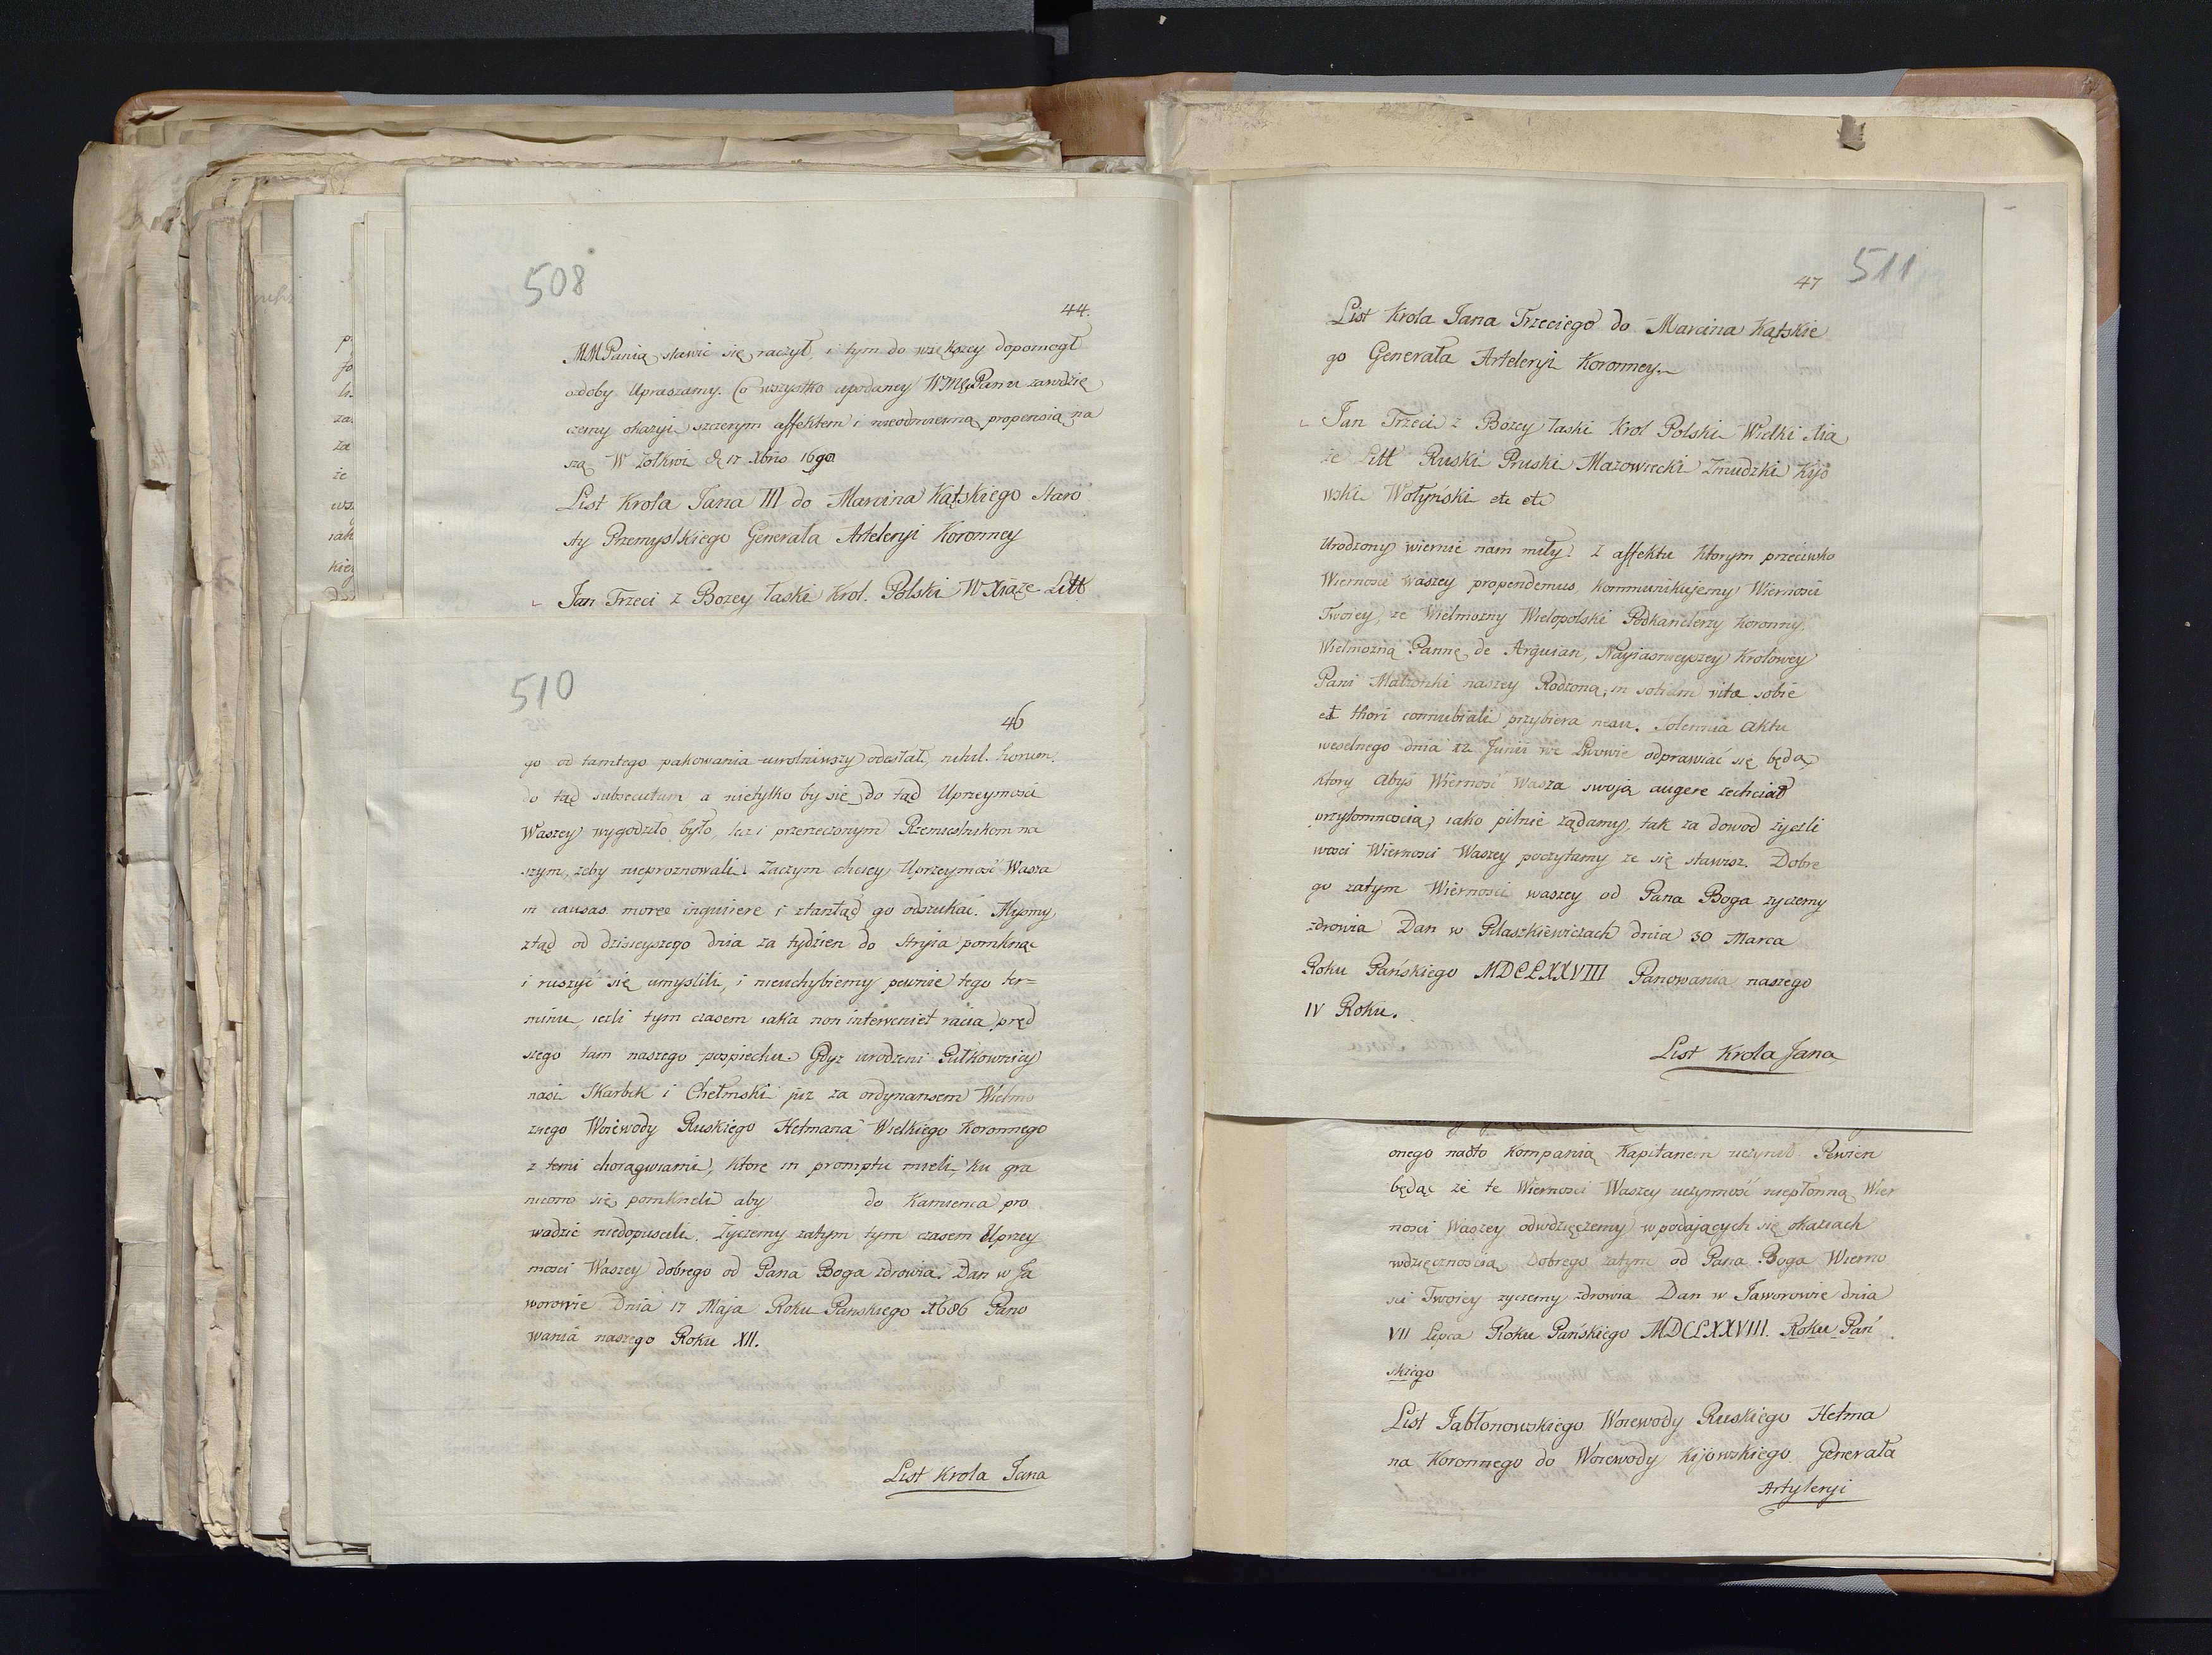 508
44.
MMPanią stawić się raczył, i tym do większey dopomogł
ozdoby Upraszamy. Co wszystko apodaney WMę Panu zawdzię
czemy okazyi szczerym affektem i nieodmienną propensią na
szą W Zołkwi d 17 Xbris 1690
List Krola Jana III do Marcina Kątskiego Staro
sty Przemyslkiego Generała Arteleryi Koronney
Jan Trzeci z Bozey łaski Krol. Polski W Xiąże Litt
510
46
go od tamtego pakowania uwolniwszy odesłał, nihil horum
do tąd subsecutum a nietylko by się do tąd Uprzeymosci
Waszey wygodziło było, lecz i przerzeczonym Rzemieslnikom na
szym, żeby nieproznowali. Zaczym chciey Uprzeymość Wasza
in causas morae inquirere i ztamtąd go odszukać. Mysmy
ztąd od dzisieyszego dnia za tydzien do Stryia pomknąc
i ruszyć się umyslili, i nieuchybiemy pewnie tego ter=
minu, iezli tym czasem iaka non interveniet racia pręd
szego tam naszego pospiechu. Gdyz urodzeni Pułkownicy
nasi Skarbek i Chełmski juz za ordynansem Wielmo
znego Woiewody Ruskiego Hetmana Wielkiego Koronnego
z temi chorągwiami, ktore in promptu mieli, ku gra
nicom się pomkneli aby do Kamienca pro
wadzic niedopuscili. Życzemy zatym tym czasem Uprzey
mosci Waszey dobrego od Pana Boga zdrowia. Dan w Ja
worowie Dnia 17 Maja Roku Panskiego 1686 Pano
wania naszego Roku XII.
List Krola Jana
47
511
List Krola Jana Trzeciego do Marcina Kątskie
go Generała Arteleryi Koronney
Jan Trzeci z Bozey łaski Krol Polski Wielki Xia
że Litt Ruski Pruski Mazowiecki Zmudzki Kijo
wski Wołyński etc etc
Urodzony wiernie nam miły! Z affektu ktorym przeciwko
Wiernosci waszey propendemus, kommunikujemy Wiernosci
Twoiey, ze Wielmozny Wielopolski Podkanclerzy Koronny
Wielmozną Pannę de Arquian, Nayiasnieyszey Krolowey
Pani Małzonki naszey Rodzoną, in sotiam vitæ sobie
et thori connubiali przybiera Solemnia Aktu
weselnego dnia 12 Junii we Lwowie odprawiać się będą,
ktory abyś Wiernosc Wasza swoją augere zechciał
przytomnoscią, iako pilnie żądamy, tak za dowod życzli
wosci Wiernosci Waszey poczytamy ze się stawisz. Dobre
go zatym Wiernosci waszey od Pana Boga zyczemy
zdrowia Dan w Pilaszkiewiczach dnia 30 Marca
Roku Pańskiego MDCLXXVIII Panowania naszego
IV Roku.
List Krola Jana
onego nadto Kompanią Kapitanem uczynił. Pewien
będąc że te Wiernosci Waszey uczynność niepłonną Wier
nosci Waszey odwdzięczemy w podających się okaziach
wdzięcznoscią. Dobrego zatym od Pana Boga Wierno
sci Twoiey zyczemy zdrowia Dan w Jaworowie dnia
VII Lipca Roku Pańskiego MDCLXXVIII. Roku Pań
skiego
List Jabłonowskiego Woiewody Ruskiego Hetma
na Koronnego do Woiewody Kijowskiego Generała
Artyleryi